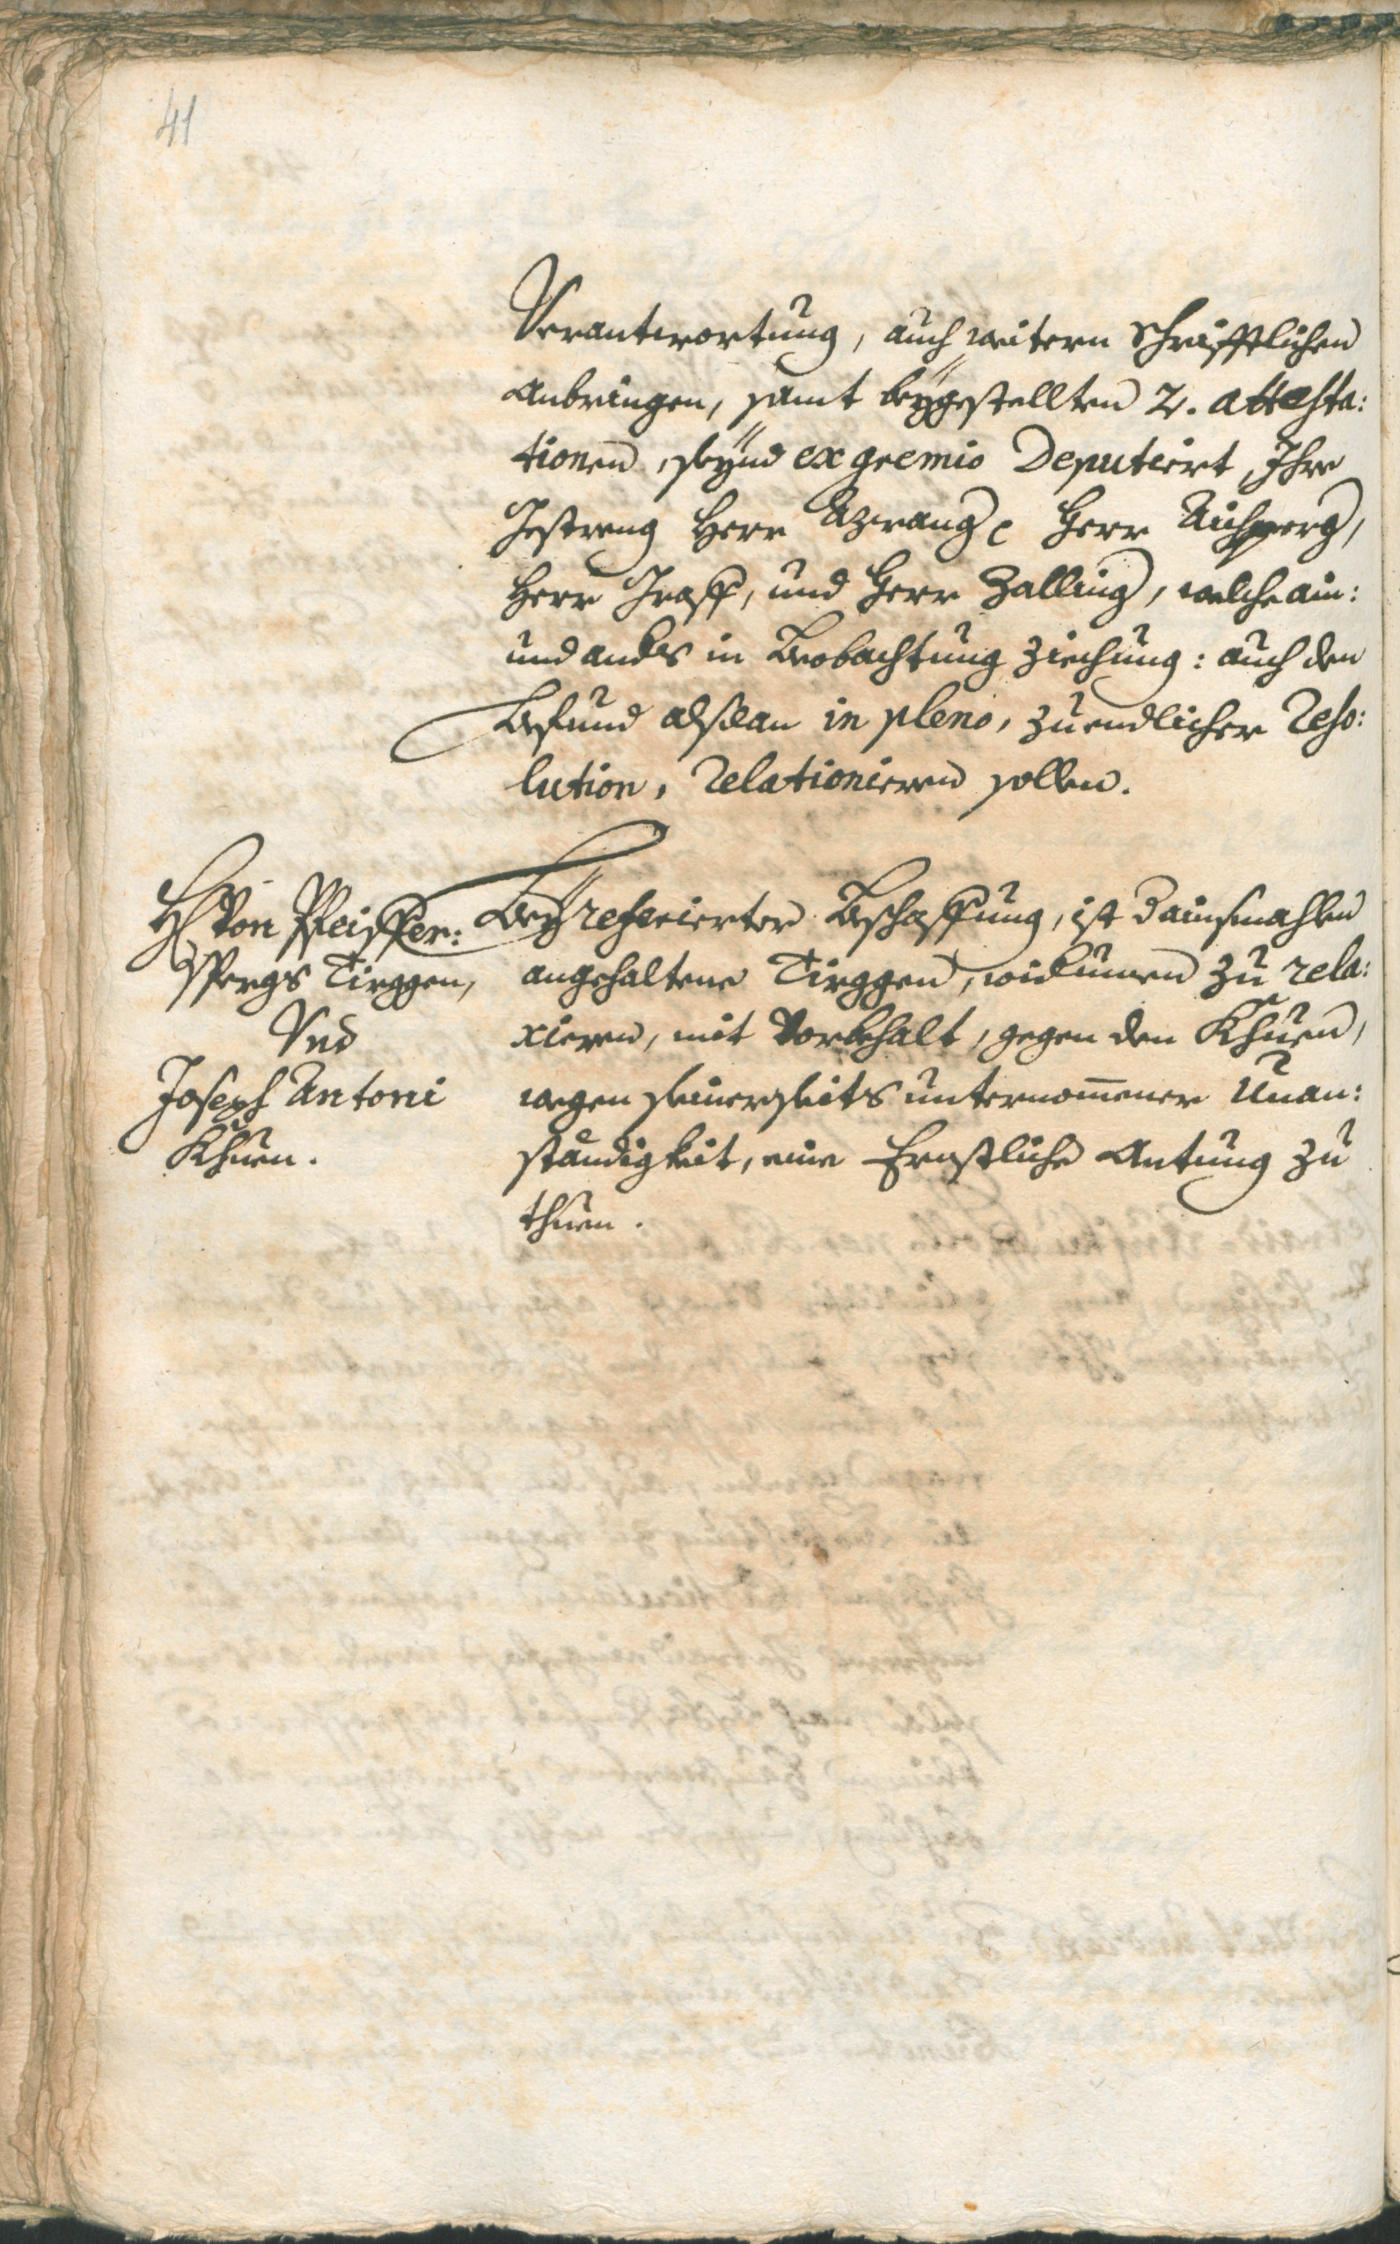 41
Verantworttung, auch weitern Schrifftlichen
Anbringen, samt beÿgestellten 2. attesta:
tionen, seÿnd ex gremio Deputiert, Ihre
Gestreng Herr Azwang, Herr Aichperg,
Herr Graff, und Herr Zalling, welche ain:
und anders in Beobachtung Ziechung: auch den
Befund alßdan in pleno, zu endlicher Reso:
lution, Relationieren sollen.
H: Von Pfeiffer:
sPergs Tirggen,
Und
Joseph Antoni
Khuen.
Beÿ referierter Beschaffung, ist dainsmahlen
angehaltene Tirggen, widumen zu rela:
xieren, mit Vorbehalt, gegen den Khuen,
wegen seinerseits unternom̄ener Unan:
ständigkeit, eine Ernstliche Antung zu
thuen.